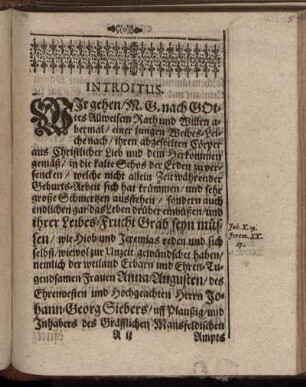 INTROITUS.
WIr gehen / M. G. nach GOt-
tes Allweisem Rath und Willen a-
bermal / einer jungen Weibes-Lei-
che nach / ihren abgeseelten Cörper
aus Christlicher Lieb und dem Herkommen
gemäß / in die kalte Schos der Erden zu ver-
sencken / welche nicht allein Zeit währender
Geburts-Arbeit sich hat krümmen / und sehr
grosse Schmertzen ausstehen / sondern auch
endlichen gar das Leben drüber einbüssen / und
ihrer Leibes-Frucht Grab seyn müs-
sen / wie Hiob und Jeremias reden und sich
selbst / wiewol zur Unzeit gewündschet haben /
nemlich der weiland Erbarn und Ehren-Tu-
gendsamen Frauen Anna Augusten / des
Ehrenvesten und Hochgeachten Herrn Jo-
hann Georg Siebers / uff Plaußig / und
Inhabers des Gräfflichen Mansfeldischen
A ij Ampts
Job. X. 19.
Jerem. XX.
17.